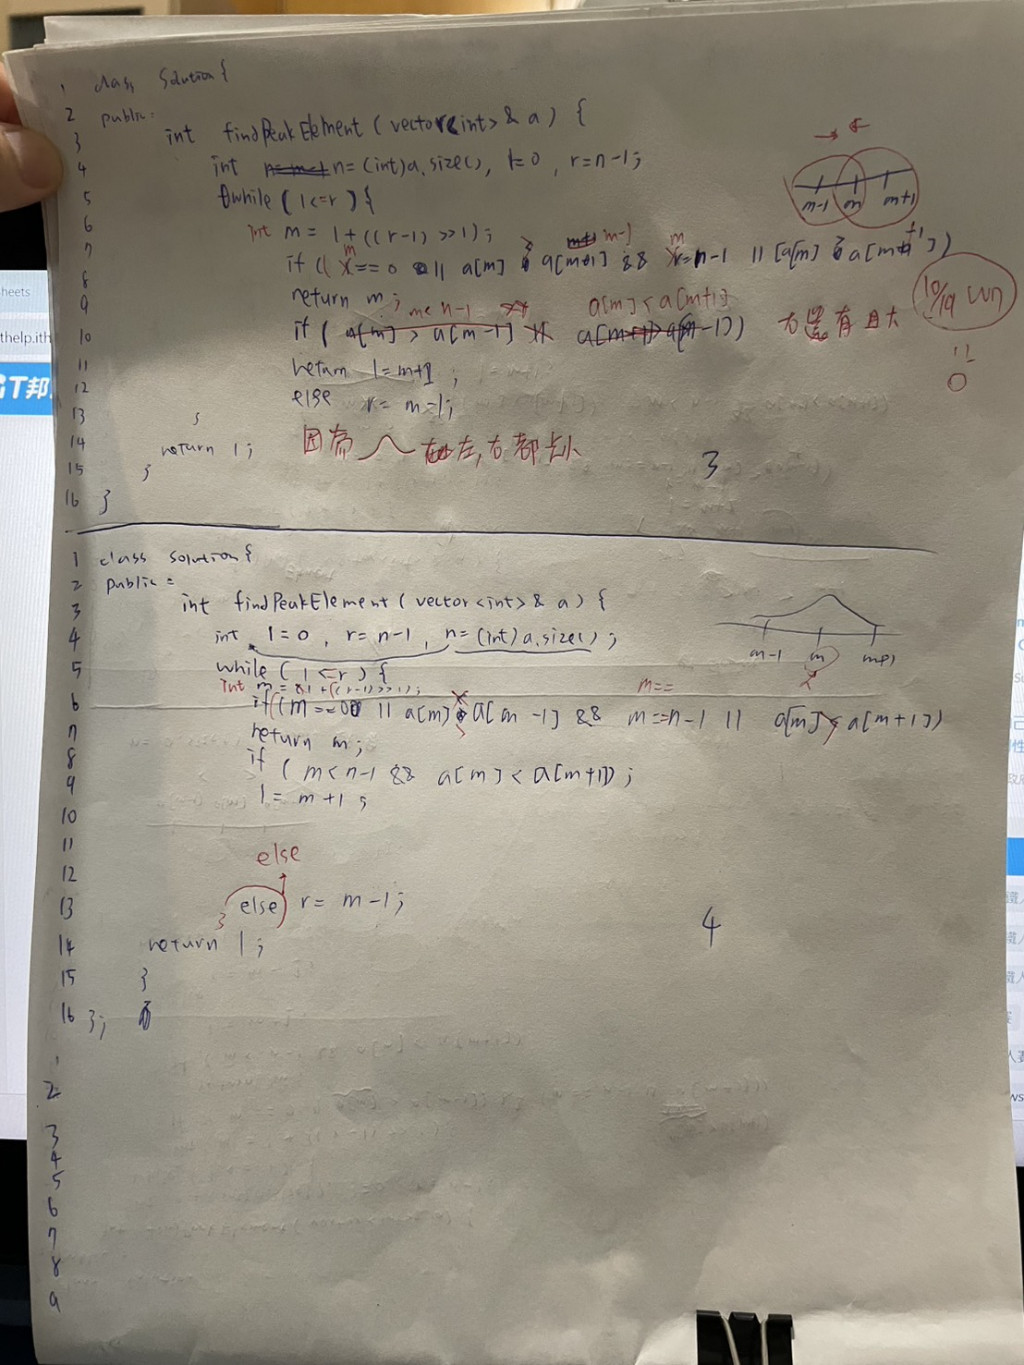 1 class Solution {
2 public:
3 int findPeakElement ( vector<int> & a ) {
4 int n = (int)a.size(), l=0, r=n-1;
5 while ( l<=r ) {
6 int m = l + ((r-l) >>1);
7 if (( m == 0 || a[m] > a[m-1] && m = n-1 || [a[m] > a[m+1])
8 return m;
9 m< n-1 a[m] < a[m+1]
10 if ( a[m] > a[m-1] a[m-1]) 右邊有且大
11 return l=m+1 ;
12 else r= m-1;
13 }
14 return l;
15 }
16 }
因有 左,右都小
3
m-1 m m+1
10/19 Sun
0
1 class Solution {
2 public:
3 int findPeakElement ( vector<int> & a ) {
4 int l=0, r=n-1, n=(int)a.size();
5 while ( l<=r ) {
int m = l + ((r-l)>>1);
m==
6 if ((m==0 || a[m] > a[m-1] && m==n-1 || a[m] > a[m+1])
7 return m;
8 if ( m<n-1 && a[m] < a[m+1]);
9 l = m+1 ;
10
11
12 else
13 } else r= m-1;
14 return l;
15 }
16 };
m-1 m m+1
4
2
3
4
5
6
7
8
9
heets
thelp.ith
GT邦